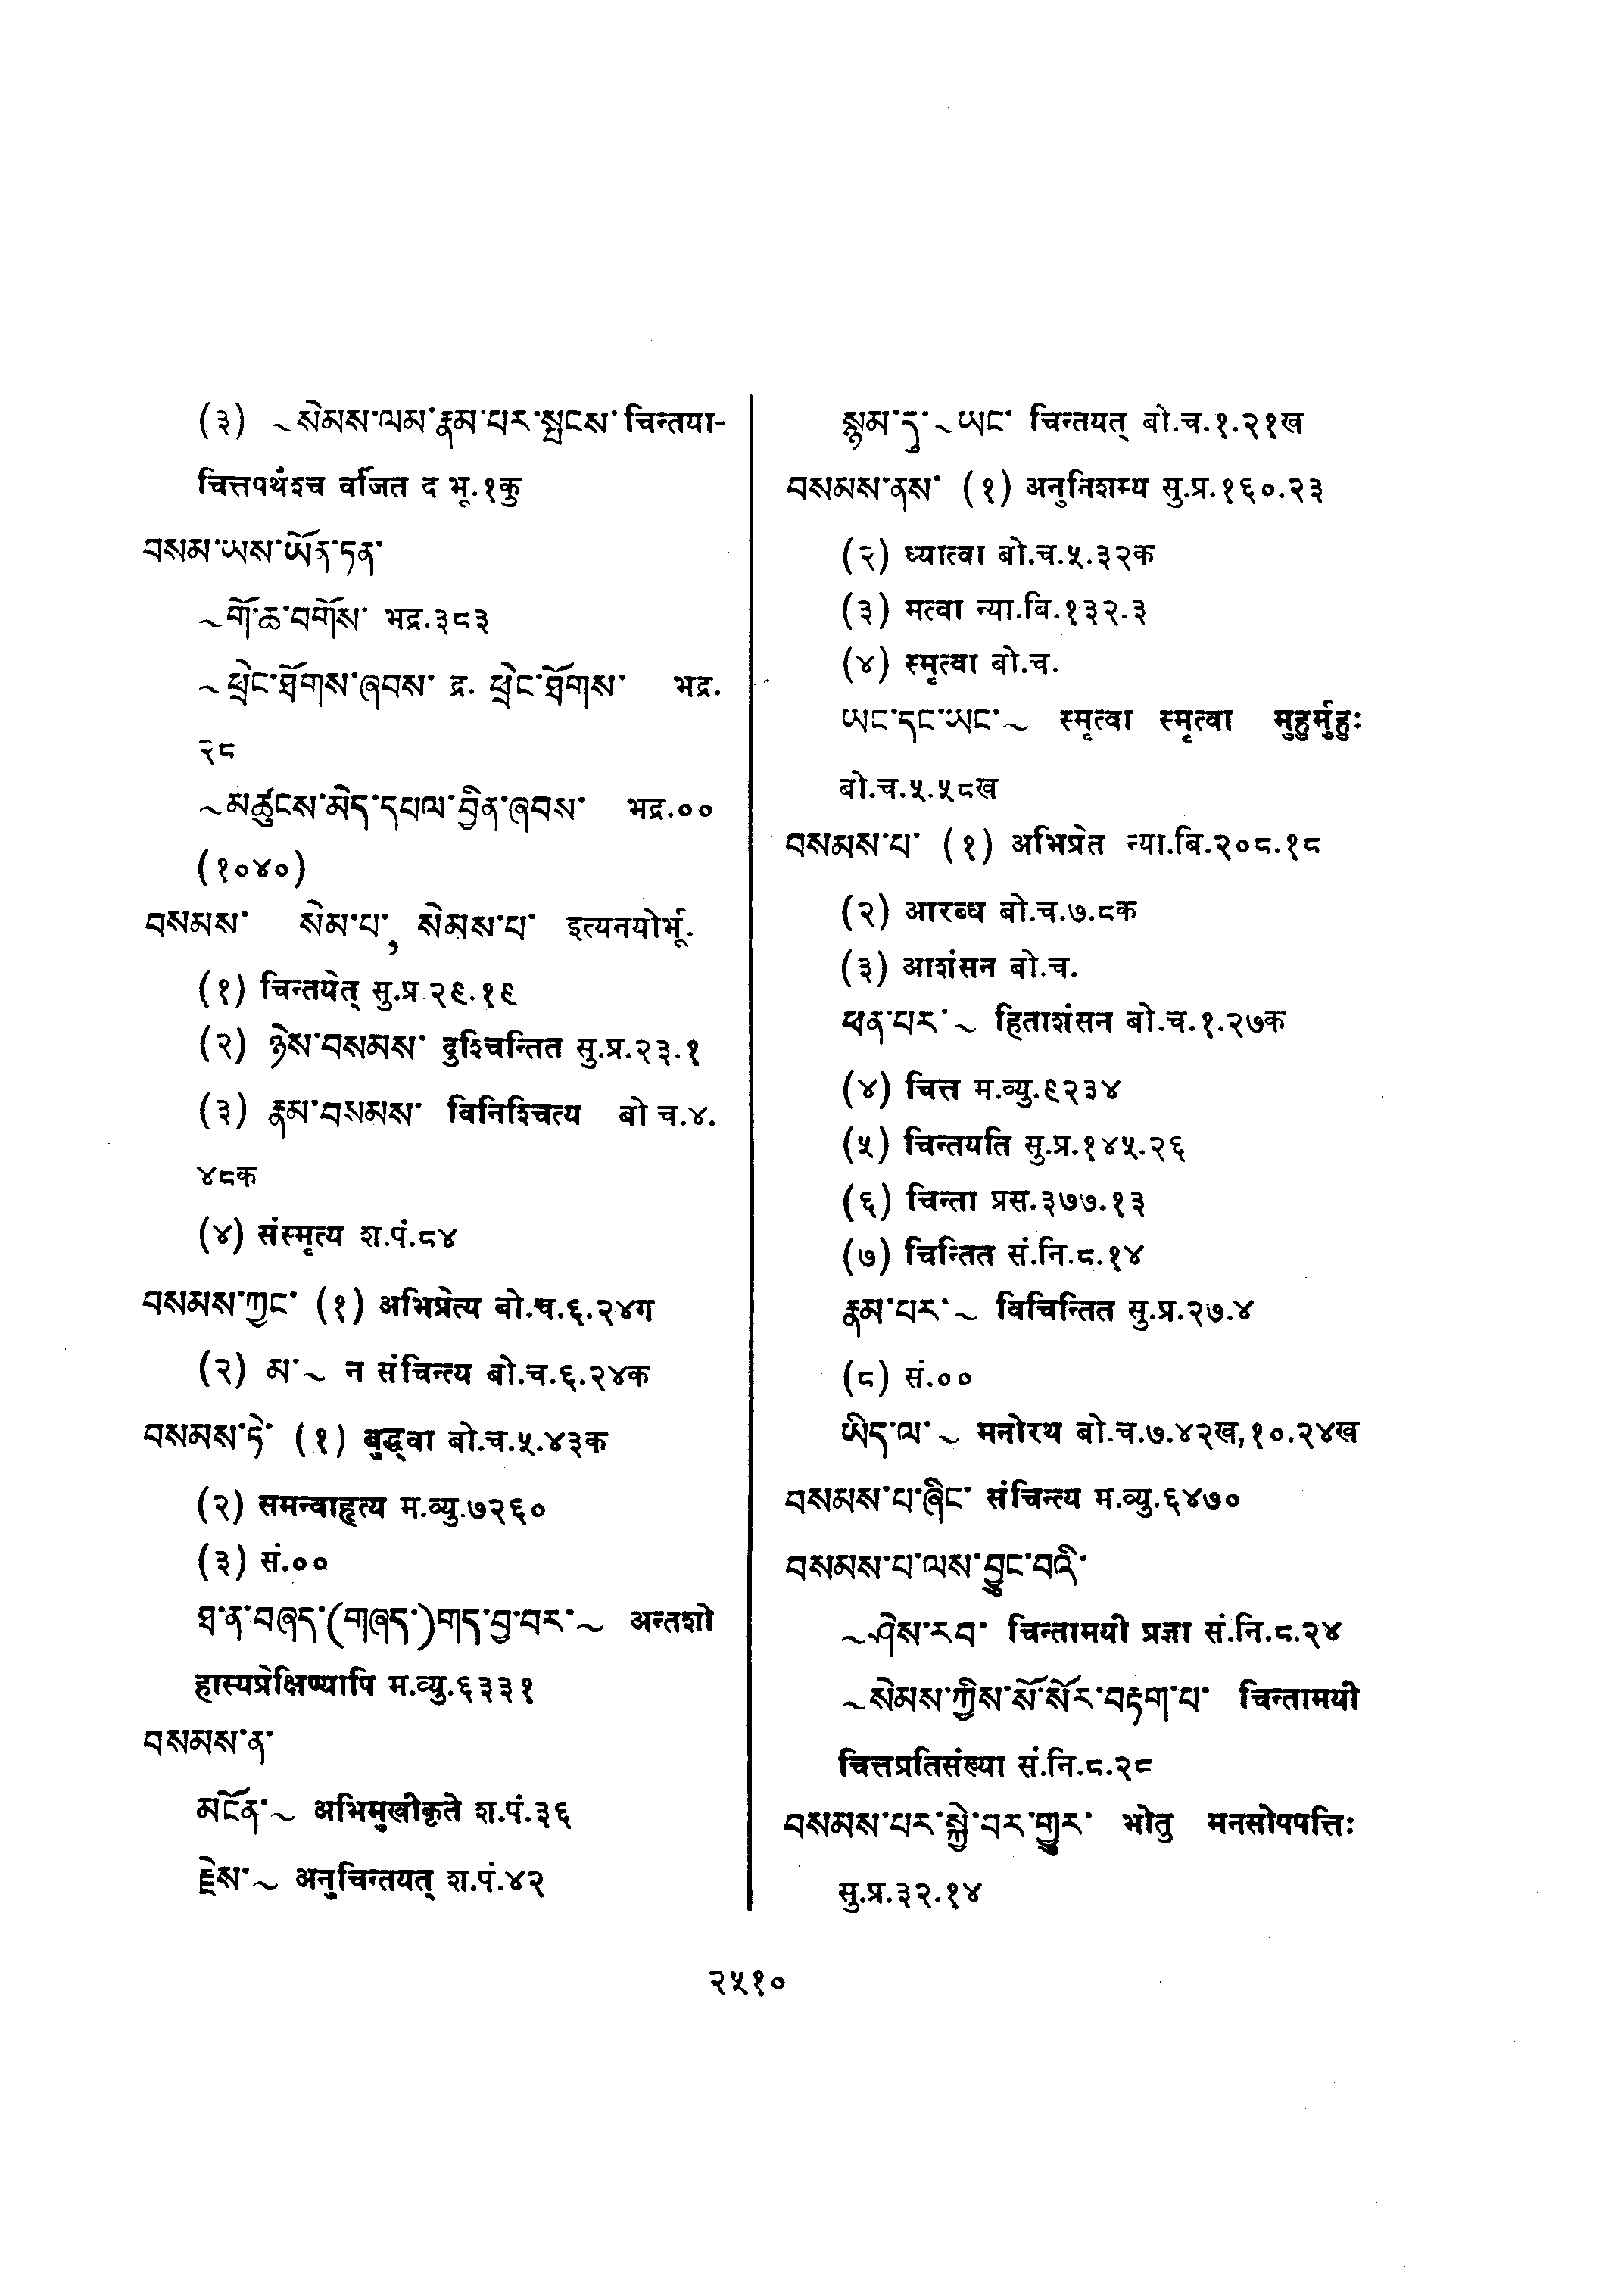 (३) ~སེམས་ལམ་རྣམ་པར་སྤངས་ चिन्तया-
चित्तपथंश्च वर्जित द भू.१कु
བསམ་ཡས་ཡོན་ཏན་
~གོ་ཆ་བགོས་ भद्र.३८३
~ཕྲེང་ཐོགས་ཞབས་ द्र. ཕྲེང་ཐོགས་ भद्र.
२८
~མཚུངས་མེད་དཔལ་བྱིན་ཞབས་ भद्र.००
(१०४०)
བསམས་ སེམ་པ་, སེམས་པ་ इत्यनयोर्भू.
(१) चिन्तयेत् सु.प्र.२९.१९
(२) ཉེས་བསམས་ दुश्चिन्तित सु.प्र.२३.१
(३) རྣམ་བསམས་ विनिश्चित्य बो च.४.
४८क
(४) संस्मृत्य श.पं.८४
བསམས་ཀྱང་ (१) अभिप्रेत्य बो.च.६.२४ग
(२) མ་~ न संचिन्त्य बो.च.६.२४क
བསམས་ཏེ་ (१) बुद्ध्वा बो.च.५.४३क
(२) समन्वाहृत्य म.व्यु.७२६०
(३) सं.००
ཐ་ན་བཞད་(གཞད་)གད་བྱ་བར་~ अन्तशो
हास्यप्रेक्षिण्यापि म.व्यु.६३३१
བསམས་ན་
མངོན་~ अभिमुखीकृते श.पं.३६
རྗེས་~ अनुचिन्तयत् श.पं.४२
སྙམ་དུ་~ཡང་ चिन्तयत् बो.च.१.२१ख
བསམས་ནས་ (१) अनुनिशम्य सु.प्र.१६०.२३
(२) ध्यात्वा बो.च.५.३२क
(३) मत्वा न्या.बि.१३२.३
(४) स्मृत्वा बो.च.
ཡང་དང་ཡང་~ स्मृत्वा स्मृत्वा मुहुर्मुहुः
बो.च.५.५८ख
བསམས་པ་ (१) अभिप्रेत न्या.बि.२०८.१८
(२) आरब्ध बो.च.७.८क
(३) आशंसन बो.च.
ཕན་པར་~ हिताशंसन बो.च.१.२७क
(४) चित्त म.व्यु.९२३४
(५) चिन्तयति सु.प्र.१४५.२६
(६) चिन्ता प्रस.३७७.१३
(७) चिन्तित सं.नि.८.१४
རྣམ་པར་~ विचिन्तित सु.प्र.२७.४
(८) सं.००
ཡིད་ལ་~ मनोरथ बो.च.७.४२ख,१०.२४ख
བསམས་པ་ཞིང་ संचिन्त्य म.व्यु.६४७०
བསམས་པ་ལས་བྱུང་བའི་
~ཤེས་རབ་ चिन्तामयी प्रज्ञा सं.नि.८.२४
~སེམས་ཀྱིས་སོ་སོར་བརྟག་པ་ चिन्तामयी
चित्तप्रतिसंख्या सं.नि.८.२८
བསམས་པར་སྐྱེ་བར་གྱུར་ भोतु मनसोपपत्तिः
सु.प्र.३२.१४
२५१०